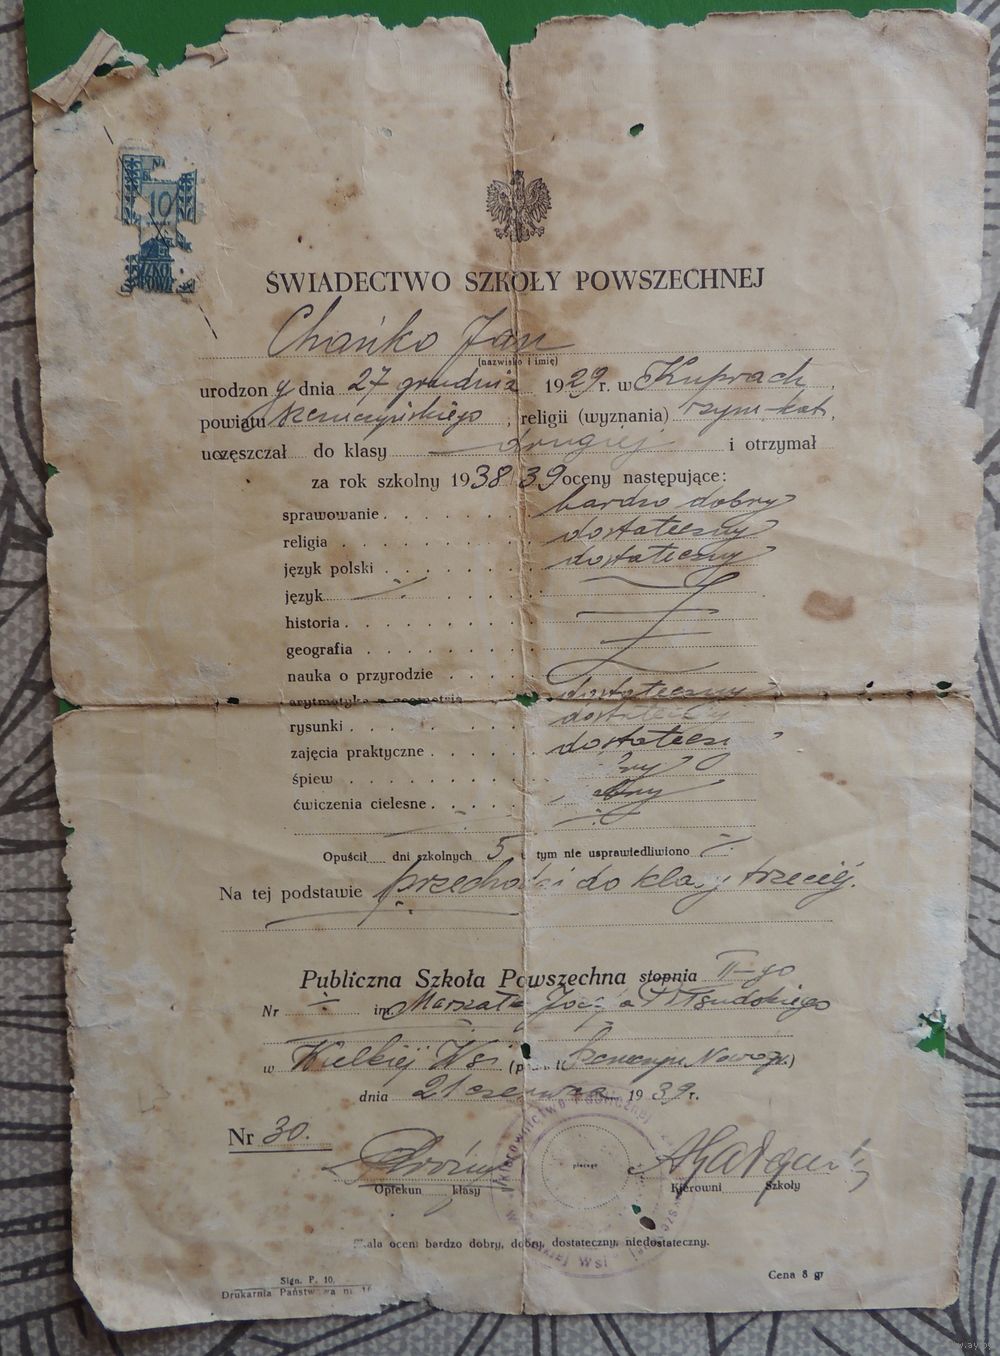 10
ŚWIADECTWO SZKOŁY POWSZECHNEJ
Chańko Jan
(nazwisko i imię)
urodzony dnia 27 grudnia 1929 r. w Kuprach,
powiatu , religii (wyznania) rzym-kat,
uczęszczał do klasy drugiej i otrzymał
za rok szkolny 1938/39 oceny następujące:
sprawowanie bardzo dobry
religia dostateczny
język polski dostateczny
język
historia
geografia
nauka o przyrodzie
arytmetyka z geometrią dostateczny
rysunki dostateczny
zajęcia praktyczne
śpiew
ćwiczenia cielesne
Opuścił dni szkolnych 5 tym nie usprawiedliwiono
Na tej podstawie przechodzi do klasy trzeciej.
Publiczna Szkoła Powszechna stopnia II-go
Nr im. Marszałka Piłsudskiego
w Wielkiej Wsi
dnia 21 czerwca 1939 r.
Nr 30.
Opiekun klasy
Kierowni Szkoły
Skala ocen: bardzo dobry, dobry, dostateczny, niedostateczny.
Sign. P. 10.
Drukarnia Państw
Cena 8 gr